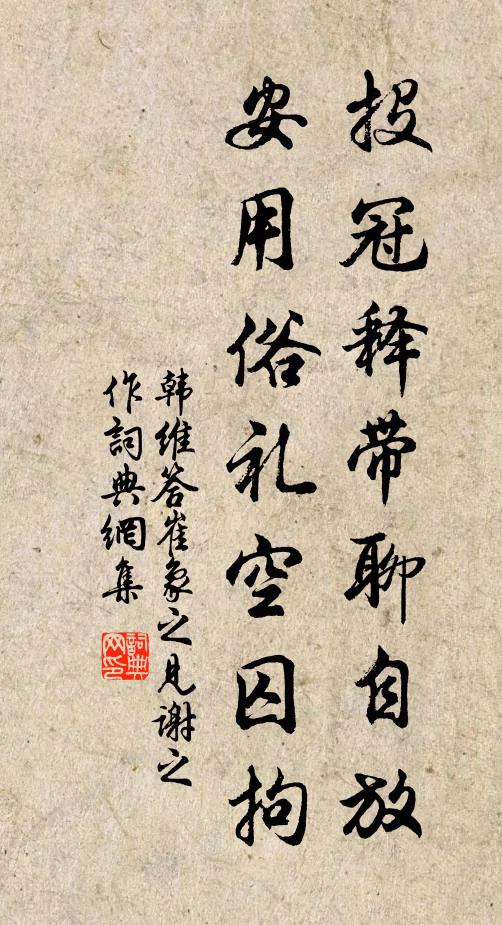 投冠释带聊自放
安用俗礼空囚拘
韩维答崔象之见谢之
作詞典網集
詞典
网印